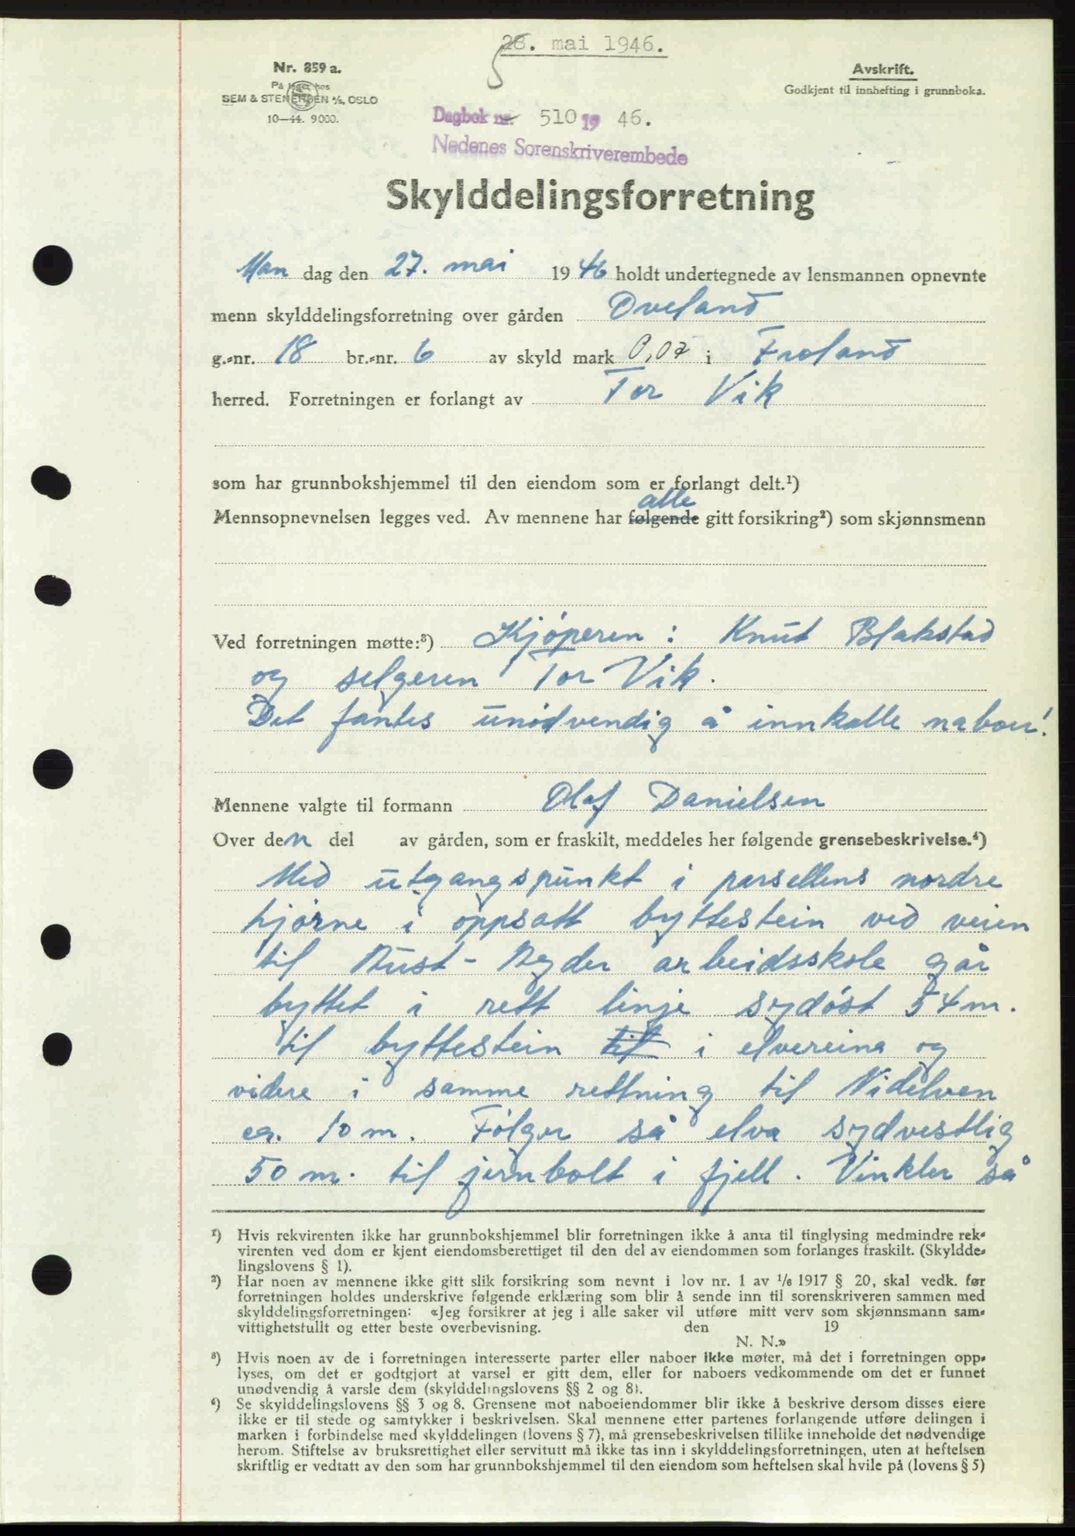 28. mai 1946.
Nr. 859 a.
På lager hos
SEM & STENERSEN A/S, OSLO
10—44. 9000.
Avskrift.
Godkjent til innhefting i grunnboka.
Dagbok nr. 510 19 46.
Nedenes Sorenskriverembede
Skylddelingsforretning
Man dag den 27. mai 1946 holdt undertegnede av lensmannen opnevnte
menn skylddelingsforretning over gården Oveland
g.-nr. 18 br.-nr. 6 av skyld mark 0,07 i Froland
herred. Forretningen er forlangt av Tor Vik
som har grunnbokshjemmel til den eiendom som er forlangt delt.¹)
alle
Mennsopnevnelsen legges ved. Av mennene har følgende gitt forsikring²) som skjønnsmenn
Ved forretningen møtte:³) Kjøperen: Knut Blakstad
og selgeren Tor Vik.
Det fantes unødvendig å innkalle naboer!
Mennene valgte til formann Olaf Danielsen
Over den del av gården, som er fraskilt, meddeles her følgende grensebeskrivelse.⁴)
Med utgangspunkt i parsellens nordre
hjørne i oppsatt byttestein ved veien
til Aust-Agder arbeidsskole går
byttet i rett linje sydøst 54 m.
til byttestein til i elvereina og
videre i samme rettning til Nidelven
ca. 10 m. Følger så elva sydvestlig
50 m. til jernbolt i fjell. Vinkler så
¹) Hvis rekvirenten ikke har grunnbokshjemmel blir forretningen ikke å anta til tinglysing medmindre rek-
virenten ved dom er kjent eiendomsberettiget til den del av eiendommen som forlanges fraskilt. (Skyldde-
lingslovens § 1).
²) Har noen av mennene ikke gitt slik forsikring som nevnt i lov nr. 1 av 1/6 1917 § 20, skal vedk. før
forretningen holdes underskrive følgende erklæring som blir å sende inn til sorenskriveren sammen med
skylddelingsforretningen: «Jeg forsikrer at jeg i alle saker vil utføre mitt verv som skjønnsmann sam-
vittighetsfullt og etter beste overbevisning. den 19
N. N.»
³) Hvis noen av de i forretningen interesserte parter eller naboer ikke møter, må det i forretningen opp-
lyses, om det er godtgjort at varsel er gitt dem, eller for naboers vedkommende om det er funnet
unødvendig å varsle dem (skylddelingslovens §§ 2 og 8).
⁴) Se skylddelingslovens §§ 3 og 8. Grensene mot naboeiendommer blir ikke å beskrive dersom disses eiere
ikke er til stede og samtykker i beskrivelsen. Skal mennene etter partenes forlangende utføre delingen i
marken i forbindelse med skylddelingen (lovens § 7), må grensebeskrivelsen tillike inneholde det nødvendige
herom. Stiftelse av bruksrettighet eller servitutt må ikke tas inn i skylddelingsforretningen, uten at heftelsen
skriftlig er vedtatt av den som har grunnbokshjemmel til den eiendom som heftelsen skal hvile på (lovens § 5)